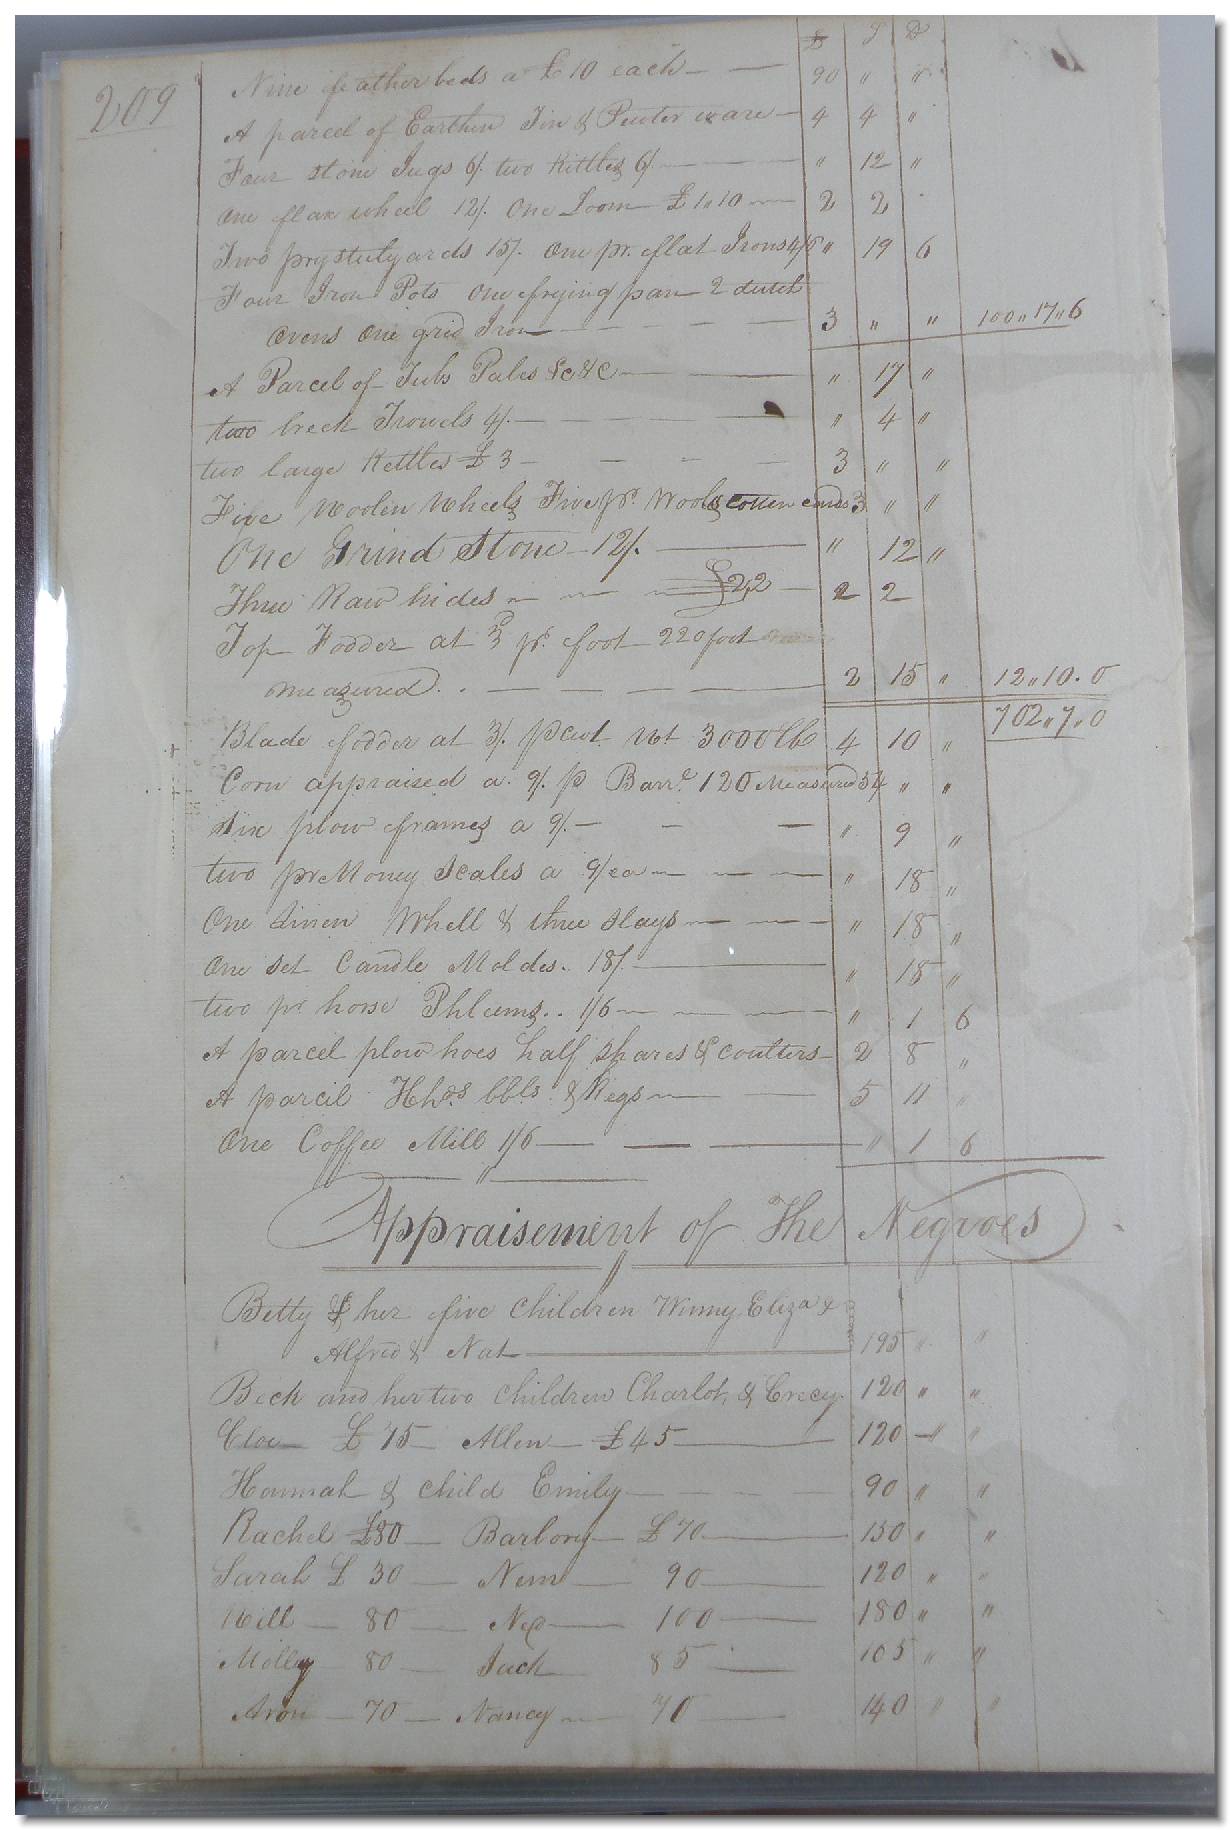 209
£ S D
Nine feather beds a £10 each 90 " "
A parcel of Earthen Tin & Pewter ware 4 4 "
Four stone Jugs 6/. two Kittles 6/ " 12 "
One flax wheel 12/. One Loom £1"10 2 2
Two pr steelyards 15/. One pr. flat Irons 4/6 " 19 6
Four Iron Pots One frying pan 2 dutch
ovens One grid Iron 3 " " 100"17"6
A Parcel of Tubs Pales &c &c " 17 "
two breck Trowels 4/. " 4 "
two large Kettles £3 3 " "
Five Woolen Wheels Five pr. Wool & Cotton cards 3 " "
One Grind Stone 12/. " 12 "
Three Raw hides £2,2 2 2
Top Fodder at 3 pr. foot 220 foot
measured 2 15 " 12"10.0
702"7"0
Blade fodder at 3/. pcwt wt 3000 lb 4 10 "
Corn appraised a. 9/. p Barrl 120 Measured 54 " "
Six plow frames a 9/. " 9 "
two pr Money Scales a 9/ ea " 18 "
One Linen Whell & three Slays " 18 "
One Set Candle Moldes. 18/. " 18 "
two pr horse Phleums.. 1/6 " 1 6
A parcel plow hoes half shares & coulters 2 8 "
A parcil Hhds bbls & Kegs 5 11 "
One Coffee Mill 1/6 " 1 6
Appraisement of The Negroes
Betty & her five Children Winny Eliza &
Alfred & Nat 195 " "
Beck and her two Children Charlot, & Crecy 120 " "
Cloe £75 Allen £45 120 " "
Hannah & Child Emily 90 " "
Rachel £80 Barbory £70 150 " "
Sarah £30 Nem 90 120 " "
Will 80 Ned 100 180 " "
Molly 80 Jack 85 165 " "
Aron 70 Nancy 70 140 " "